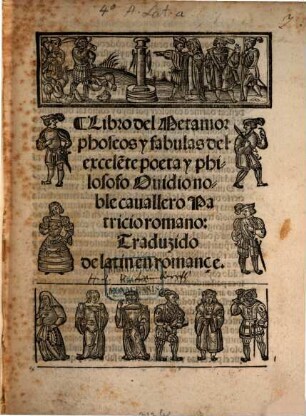 4° A. Lat. a
Libro del Metamor
phoseos y fabulas del
excelẽte poeta y phi
losofo Ouidio no
ble cauallero Pa
tricio romano:
Traduzido
de latin en romance.